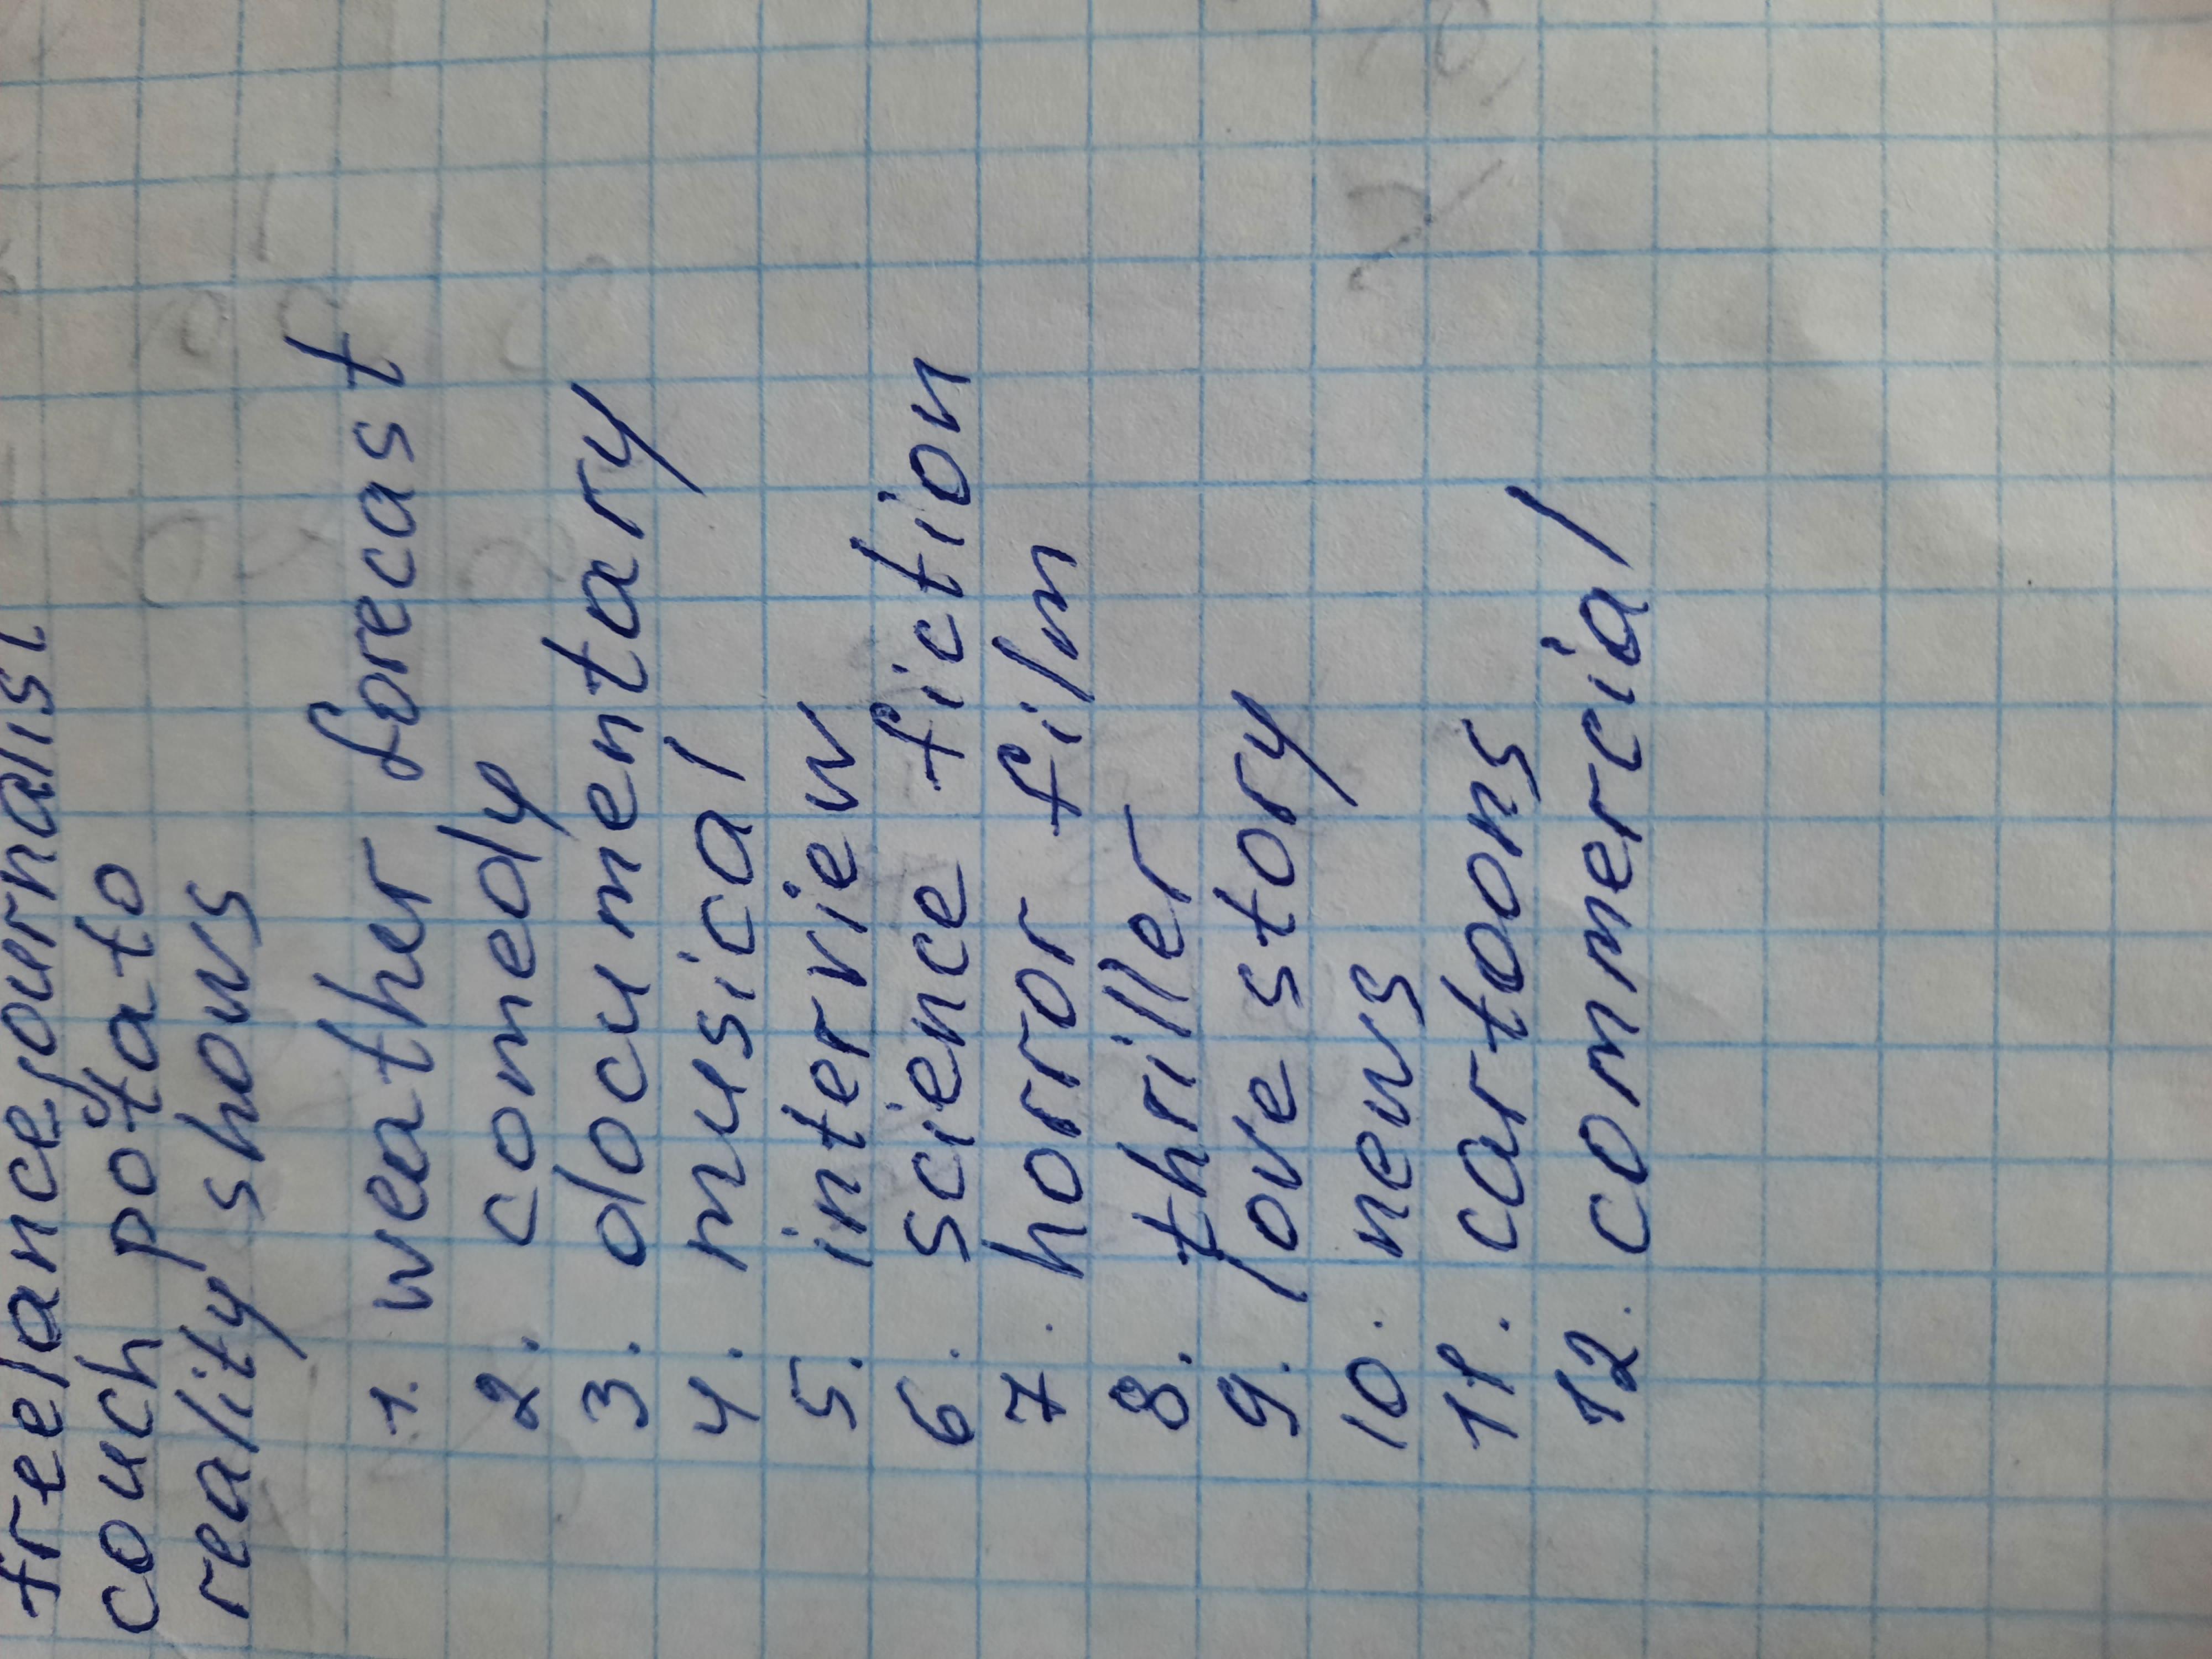 freelance journalist
couch potato
reality shows
1. weather forecast
2. comedy
3. documentary
4. musical
5. interview
6. science fiction
7. horror film
8. thriller
9. love story
10. news
11. cartoons
12. commercial